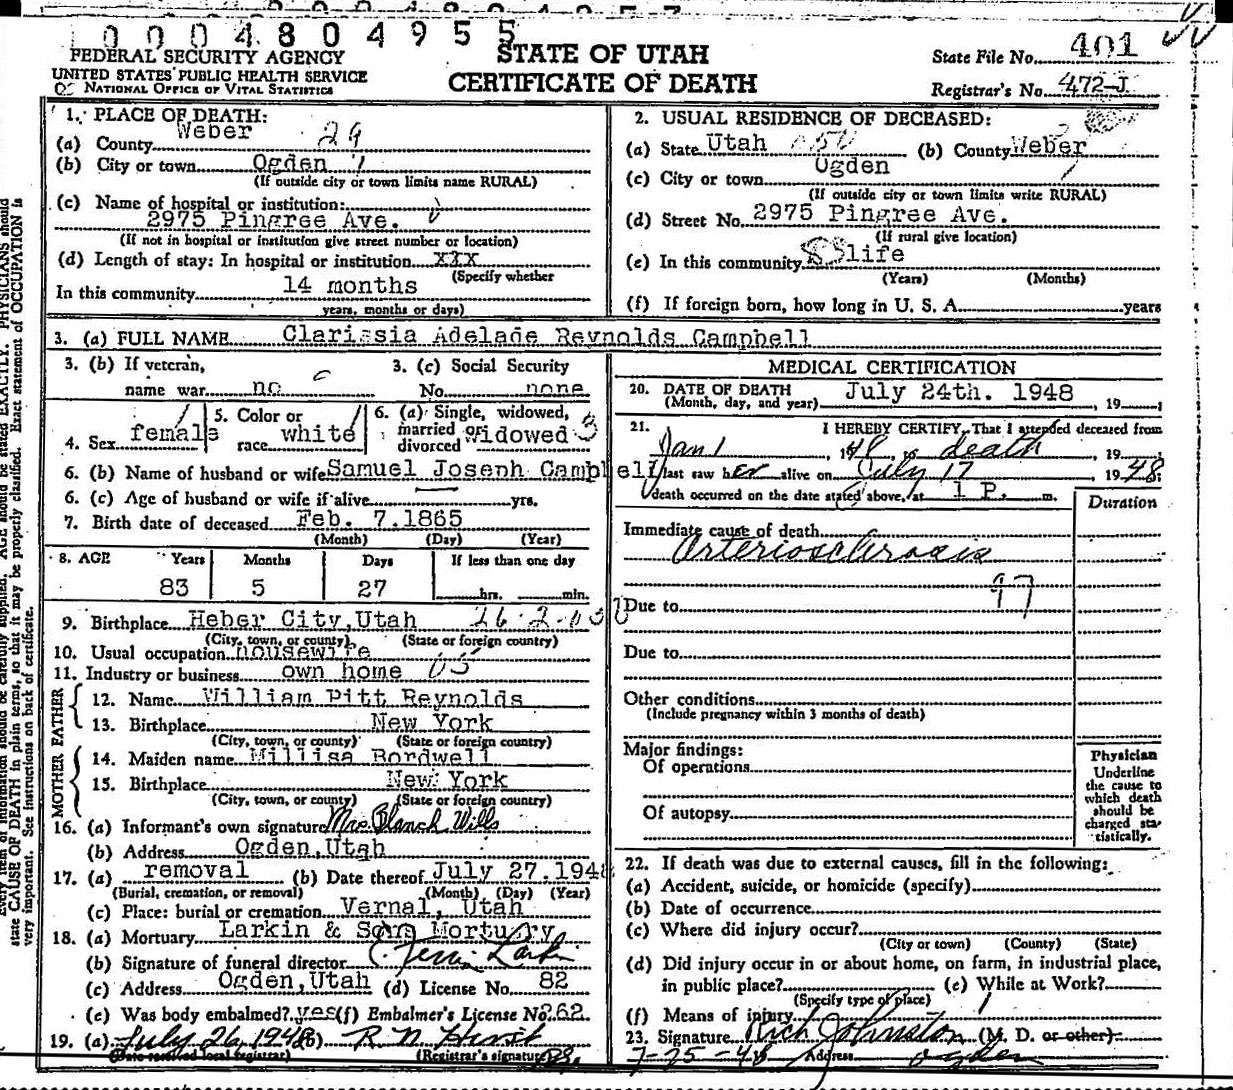 0004804955
FEDERAL SECURITY AGENCY
UNITED STATES PUBLIC HEALTH SERVICE
NATIONAL OFFICE OF VITAL STATISTICS
STATE OF UTAH
CERTIFICATE OF DEATH
State File No. 401
Registrar's No. 472-J
1. PLACE OF DEATH:
(a) County Weber 29
(b) City or town Ogden
(If outside city or town limits name RURAL)
(c) Name of hospital or institution:
2975 Pingree Ave.
(If not in hospital or institution give street number or location)
(d) Length of stay: In hospital or institution XXX
(Specify whether
In this community 14 months
years, months or days)
2. USUAL RESIDENCE OF DECEASED:
(a) State Utah (b) County Weber
(c) City or town Ogden
(If outside city or town limits write RURAL)
(d) Street No. 2975 Pingree Ave.
(If rural give location)
(e) In this community life
(Years) (Months)
(f) If foreign born, how long in U. S. A. years
3. (a) FULL NAME Clarissia Adelade Reynolds Campbell
3. (b) If veteran,
name war no
3. (c) Social Security
No. none
4. Sex female
5. Color or
race white
6. (a) Single, widowed,
married or
divorced Widowed 3
6. (b) Name of husband or wife Samuel Joseph Campbell
6. (c) Age of husband or wife if alive yrs.
7. Birth date of deceased Feb. 7.1865
(Month) (Day) (Year)
8. AGE Years Months Days If less than one day
83 5 27 hrs. min.
9. Birthplace Heber City,Utah
(City, town, or county) (State or foreign country)
10. Usual occupation housewife
11. Industry or business own home
FATHER
12. Name William Pitt Reynolds
13. Birthplace New York
(City, town, or county) (State or foreign country)
MOTHER
14. Maiden name Millisa Bordwell
15. Birthplace New York
(City, town, or county) (State or foreign country)
16. (a) Informant's own signature Mrs Blanch Wills
(b) Address Ogden,Utah
17. (a) removal (b) Date thereof July 27.1948
(Burial, cremation, or removal) (Month) (Day) (Year)
(c) Place: burial or cremation Vernal, Utah
18. (a) Mortuary Larkin & Sons Mortuary
(b) Signature of funeral director Larkin
(c) Address Ogden,Utah (d) License No. 82
(e) Was body embalmed? yes (f) Embalmer's License No. 262
19. (a) July 26, 1948 (b) R N Hirst
(Date received local registrar) (Registrar's signature)
MEDICAL CERTIFICATION
20. DATE OF DEATH July 24th. 1948
(Month, day, and year) , 19 ;
21. I HEREBY CERTIFY, That I attended deceased from
Jan 1 , 1948, to death , 19 ;
I last saw her alive on July 17 19 48;
death occurred on the date stated above, at 1 P. m.
Duration
Immediate cause of death
Arteriosclerosis
97
Due to
Due to
Other conditions
(Include pregnancy within 3 months of death)
Major findings:
Of operations
Of autopsy
Physician
Underline
the cause to
which death
should be
charged sta-
tistically.
22. If death was due to external causes, fill in the following:
(a) Accident, suicide, or homicide (specify)
(b) Date of occurrence
(c) Where did injury occur?
(City or town) (County) (State)
(d) Did injury occur in or about home, on farm, in industrial place,
in public place? (e) While at Work?
(Specify type of place)
(f) Means of injury
23. Signature Rich Johnston (M. D. or other)
7-25-48 Address Ogden
state CAUSE OF DEATH in plain terms, so that it may be properly classified. Exact statement of OCCUPATION is
very important. See instructions on back of certificate.